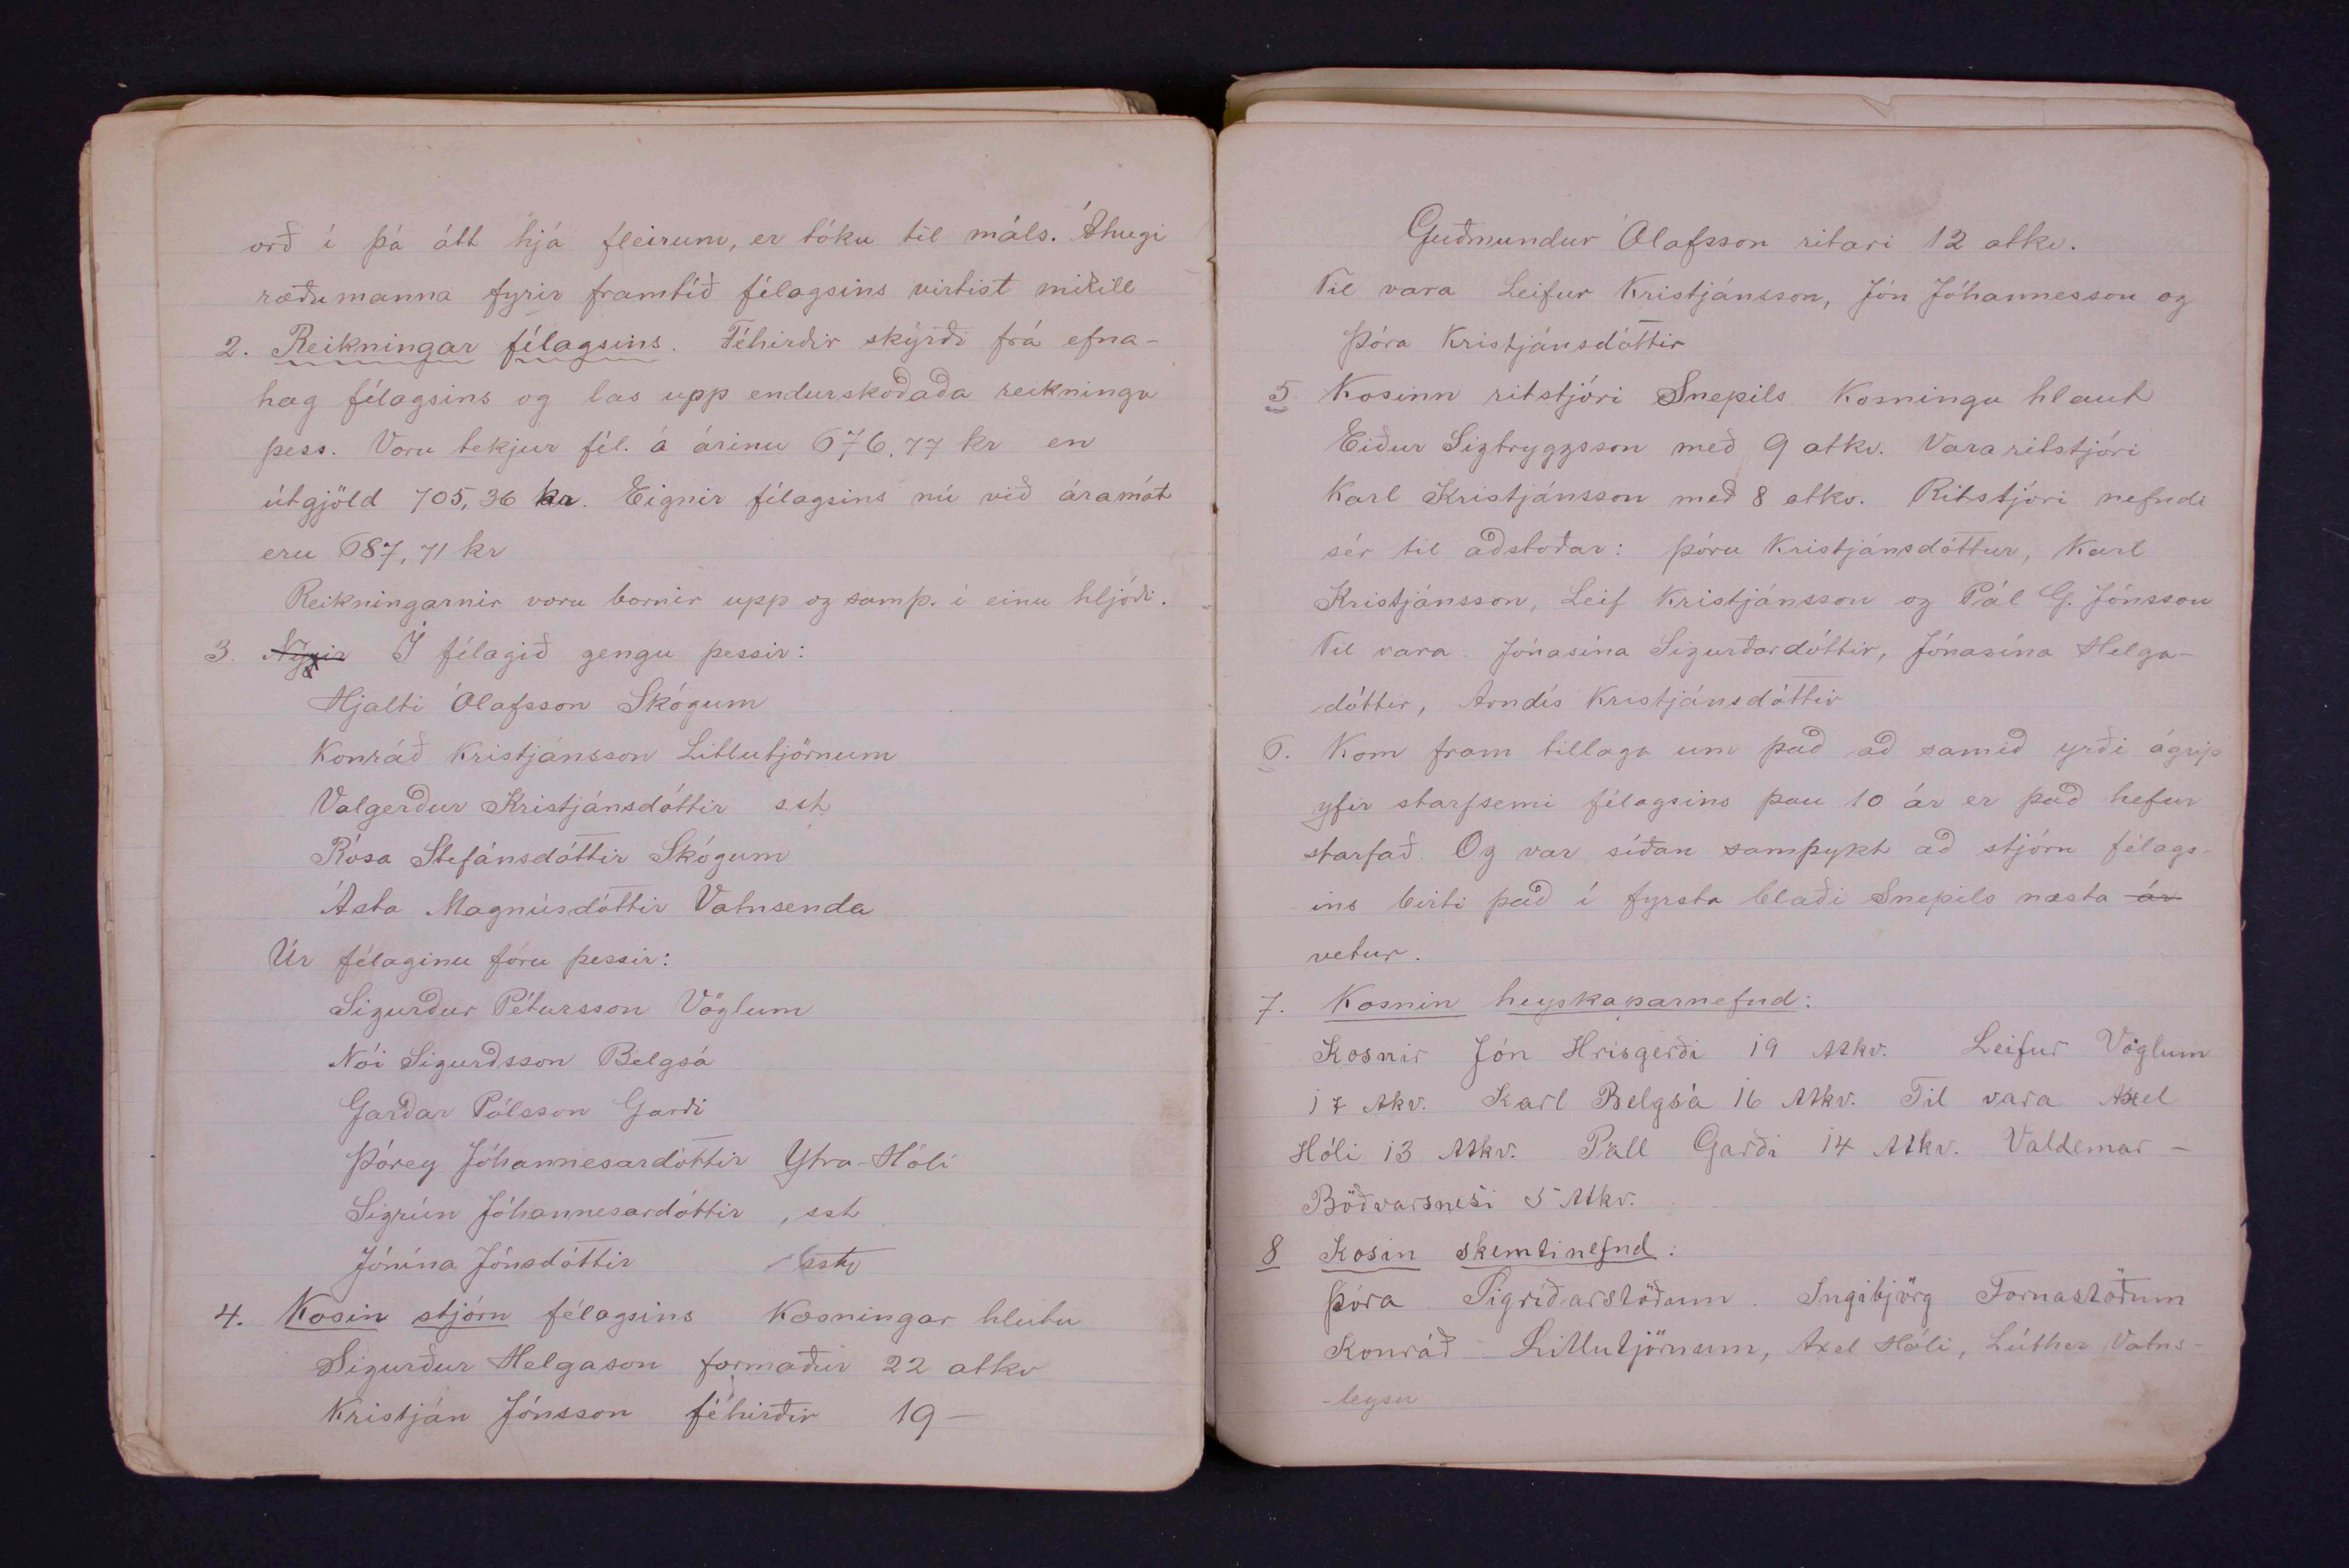 orð í þá átt hjá fleirum, er tóku til máls. Áhugi
ræðumanna fyrir framtíð félagsins virtist mikill
2. Reikningar félagsins. Féhirðir skýrði frá efna-
hag félagsins og las upp endurskoðaða reikninga
þess. Voru tekjur fél. á árinu 676,77 kr en
útgjöld 705,36 kr. Eignir félagsins nú við áramót
eru 687,71 kr
Reikningarnir voru bornir upp og samþ. í einu hljóði.
3. Nýjir Í félagið gengu þessir:
Hjalti Ólafsson Skógum
Konráð Kristjánsson Litlutjörnum
Valgerður Kristjánsdóttir s.st
Rósa Stefánsdóttir Skógum
Ásta Magnúsdóttir Vatnsenda
Úr félaginu fóru þessir:
Sigurður Pétursson Vöglum
Nói Sigurðsson Belgsá
Garðar Pálsson Garði
Þórey Jóhannesardóttir Ytra-Hóli
Sigrún Jóhannesardóttir , sst
Jónína Jónsdóttir sst
4. Kosin stjórn félagsins Kosningar hlutu
Sigurður Helgason formaður 22 atkv
Kristján Jónsson féhirðir 19 —
Guðmundur Ólafsson ritari 12 atkv.
Til vara Leifur Kristjánsson, Jón Jóhannesson og
Þóra Kristjánsdóttir
5. Kosinn ritstjóri Snepils. Kosningu hlaut
Eiður Sigtryggsson með 9 atkv. Vararitstjóri
Karl Kristjánsson með 8 atkv. Ritstjóri nefndi
sér til aðstoðar: Þóru Kristjánsdóttur, Karl
Kristjánsson, Leif Kristjánsson og Pál G. Jónsson
Til vara. Jónasína Sigurðardóttir, Jónasína Helga-
dóttir, Arndís Kristjánsdóttir
6. Kom fram tillaga um það að samið yrði ágrip
yfir starfsemi félagsins þau 10 ár er það hefur
starfað. Og var síðan samþykt að stjórn félags-
ins birti það í fyrsta blaði Snepils næsta ár
vetur.
7. Kosnin heyskaparnefnd:
Kosnir Jón Hrísgerði 19 Atkv. Leifur Vöglum
17 Akv. Karl Belgsá 16 Atkv. Til vara Axel
Hóli 13 Atkv. Páll Garði 14 Atkv. Valdemar -
Böðvarsnesi 5 Atkv.
8 Kosin skemtinefnd:
Þóra Sigríðarstöðum. Ingibjörg Fornastöðum
Konráð Litlutjörnum, Axel Hóli, Lúther Vatns-
-leysu